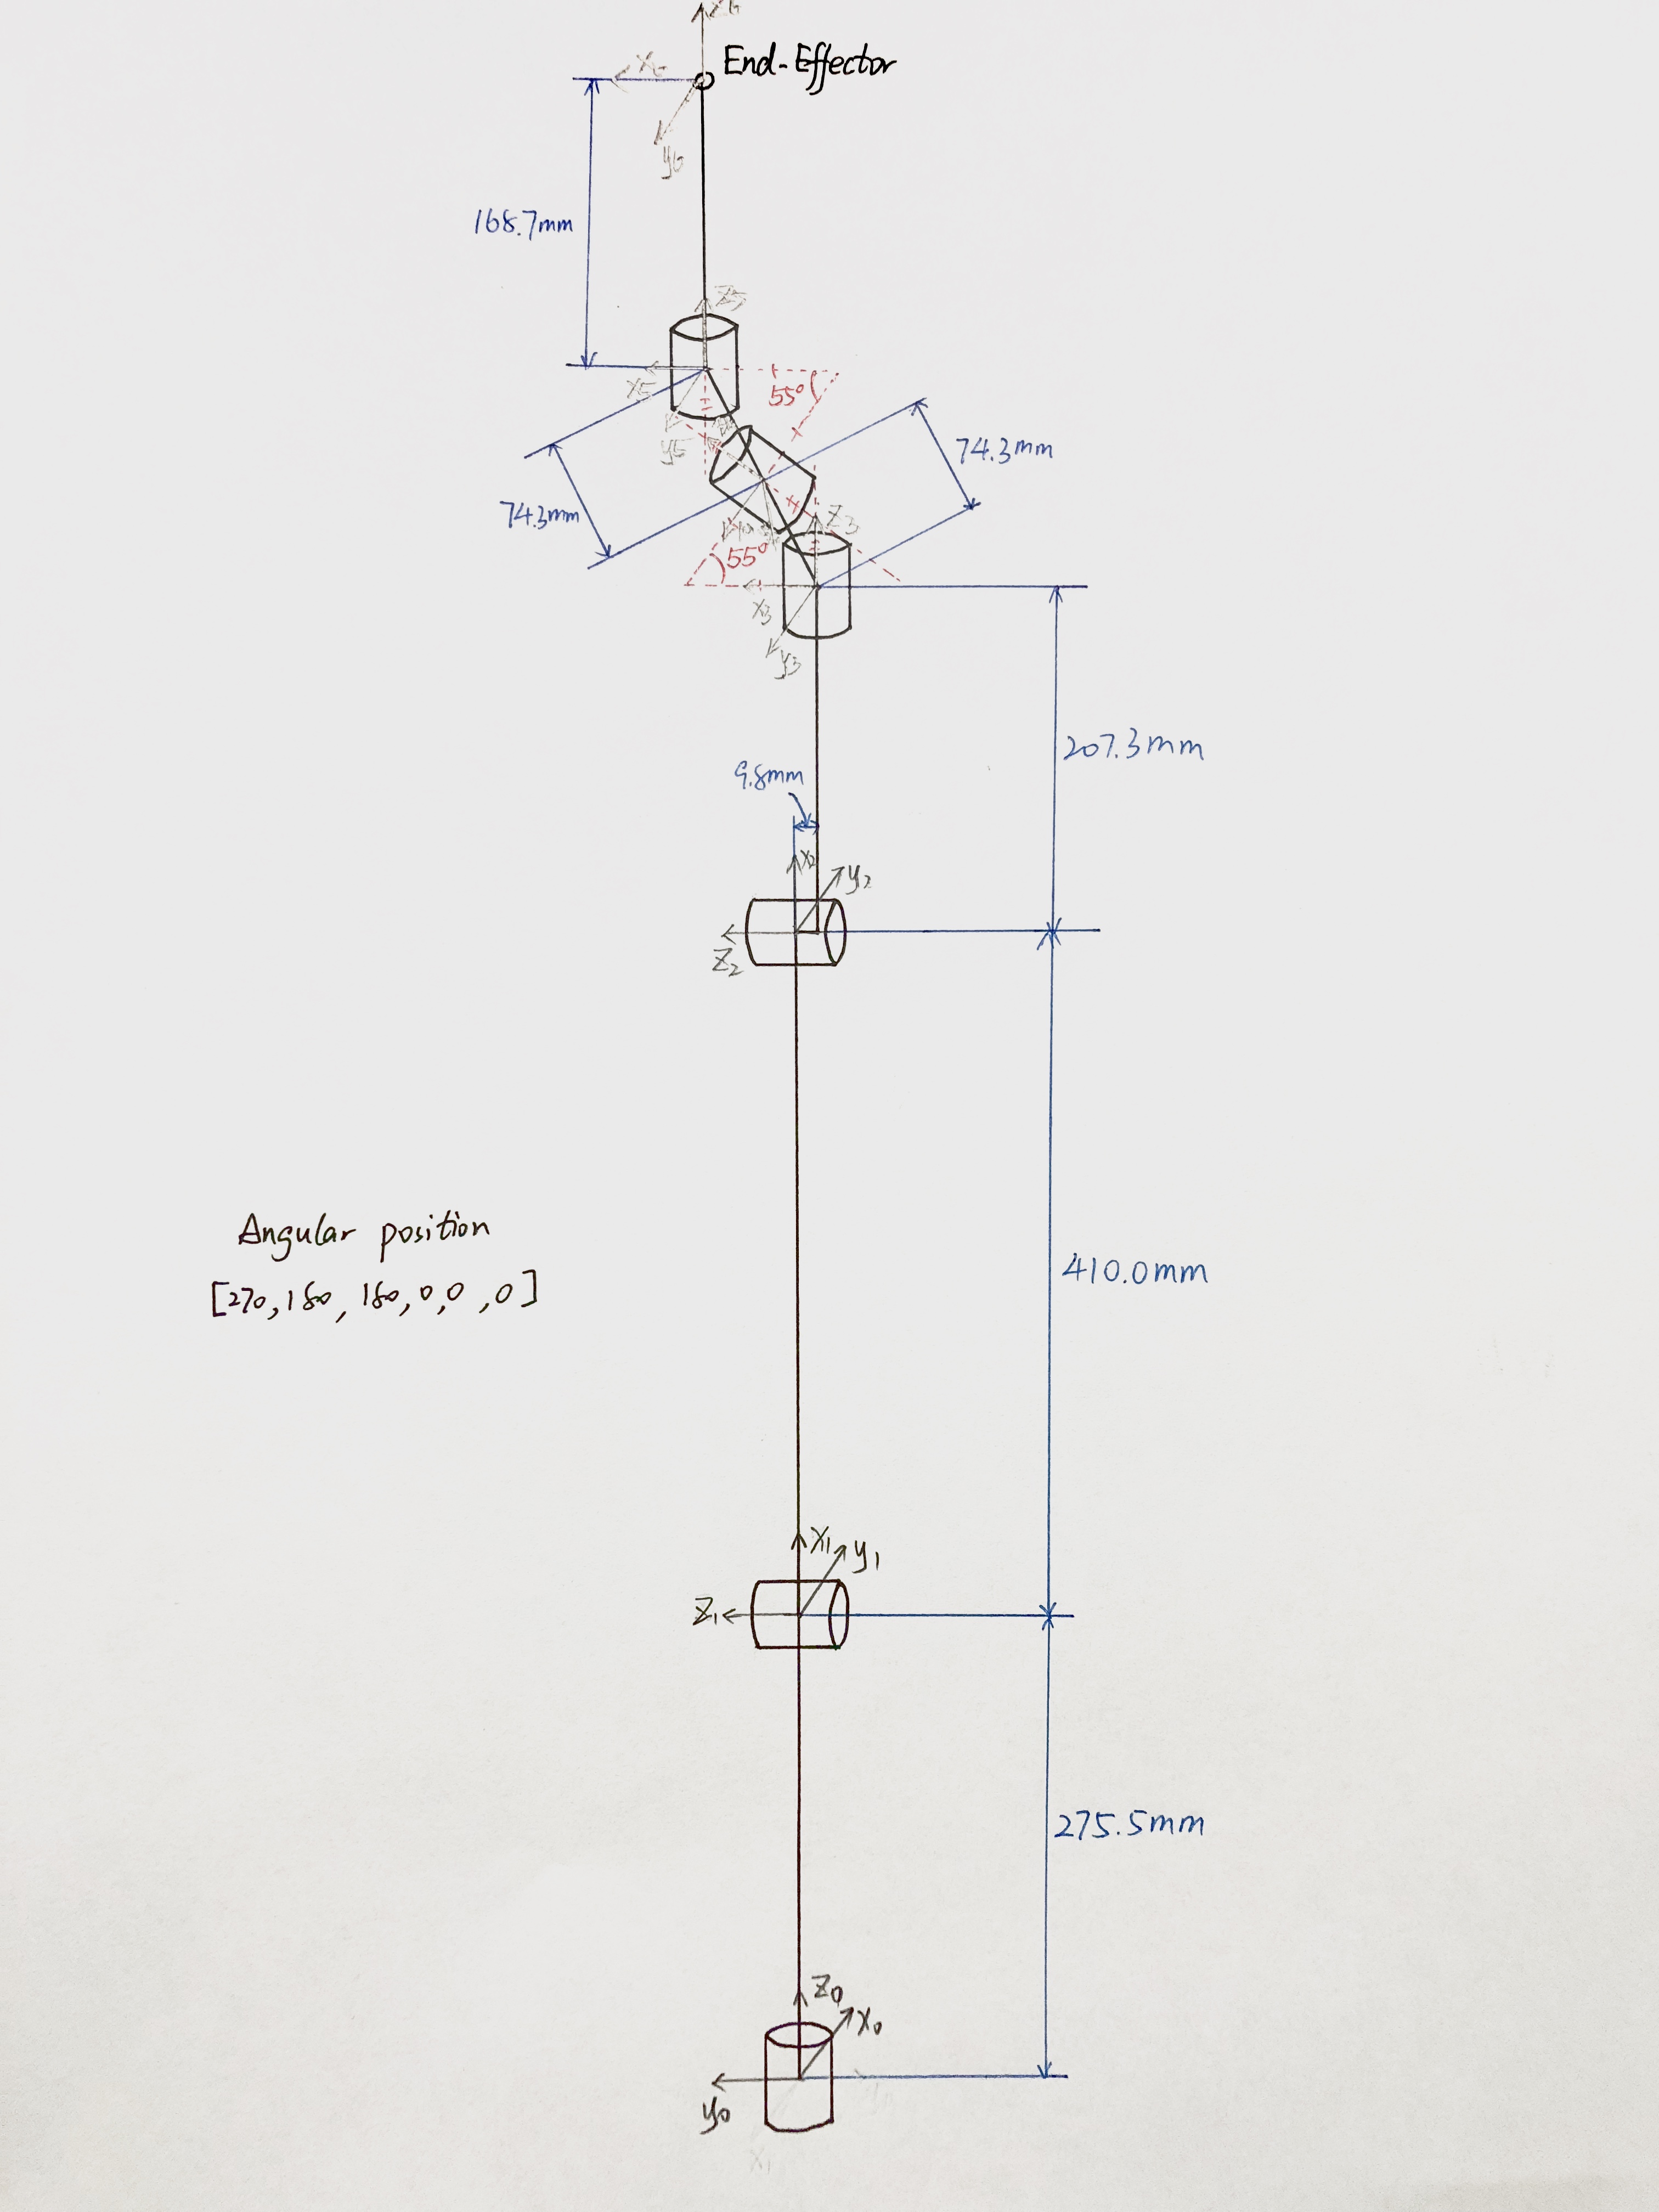 Z6
End-Effector
X6
y6
168.7mm
Z5
X5
55°
y5
74.3mm
74.3mm
Z3
55°
X3
y3
207.3mm
9.8mm
X2
y2
Z2
Angular position
[270, 180, 180, 0, 0, 0]
410.0mm
X1
y1
Z1
275.5mm
Z0
X0
y0
X1